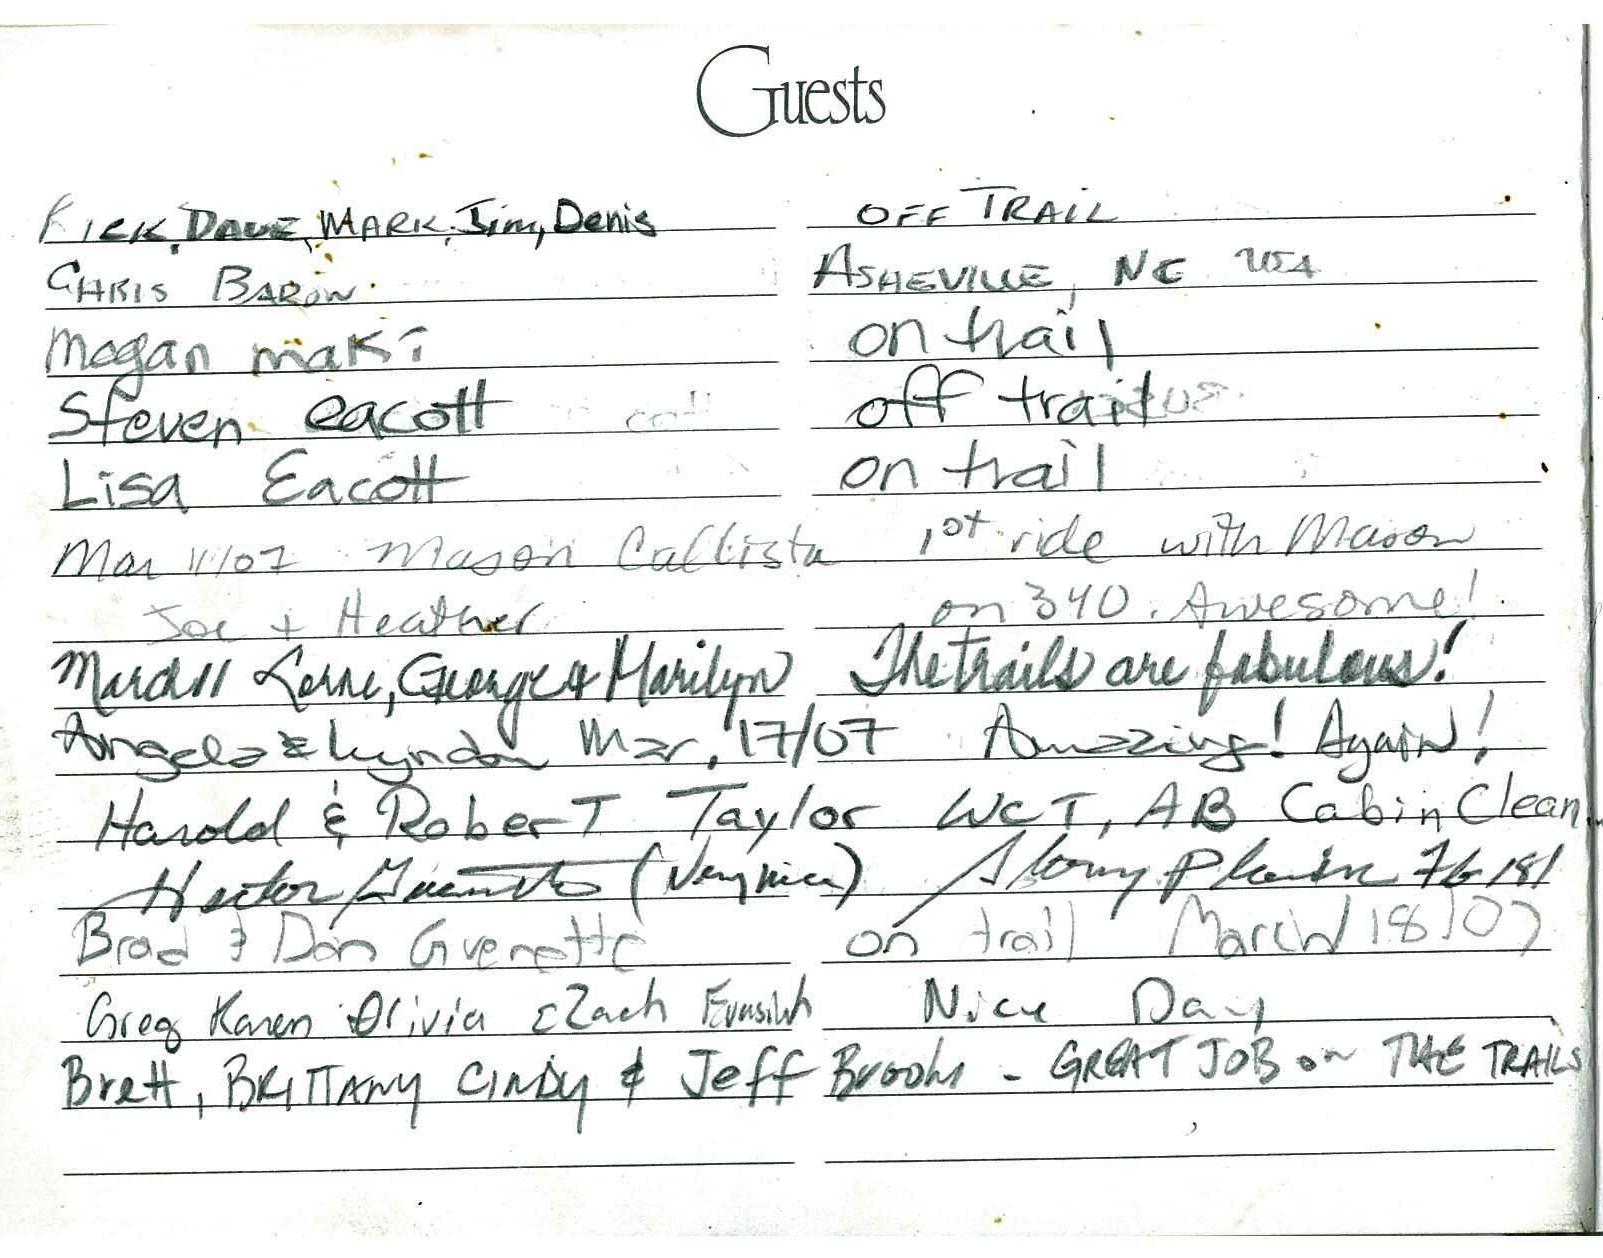 Guests
Rick, DAVE, MARK, Jim, Denis OFF TRAIL
CHRIS BARON ASHEVILLE, NC USA
Megan maki on trail
Steven eacott off trail
Lisa Eacott on trail
Mar 11/07 Mason Callista 1st ride with Mason
Joe + Heather on 340. Awesome!
March 11 Lorne, George & Marilyn The trails are fabulous!
Angela & Lyndon Mar, 17/07 Amazing! Again!
Harold & Robert Taylor WCT, AB Cabin Clean
Hector
Brad & Don Guenette on trail March 18/07
Greg Karen Olivia & Zach Nice Day
Brett, BRITTANY CINDY & Jeff Brooks - GREAT JOB on THE TRAILS